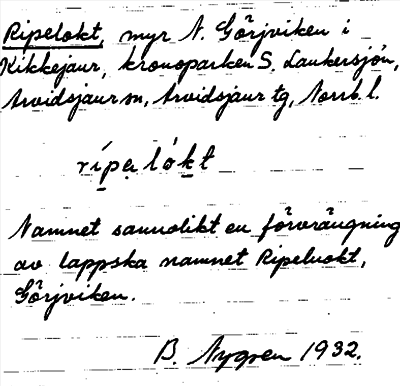 Ripelokt, myr N. Görjviken i
Kikkejaur, kronoparken S. Laukersjön,
Arvidsjaur sn, Arvidsjaur tg, Norrb. l.
rípe̥ lók̠t
Namnet sannolikt en förvrängning
av lappska namnet Ripeluokt,
Görjviken.
B. Nygren 1932.